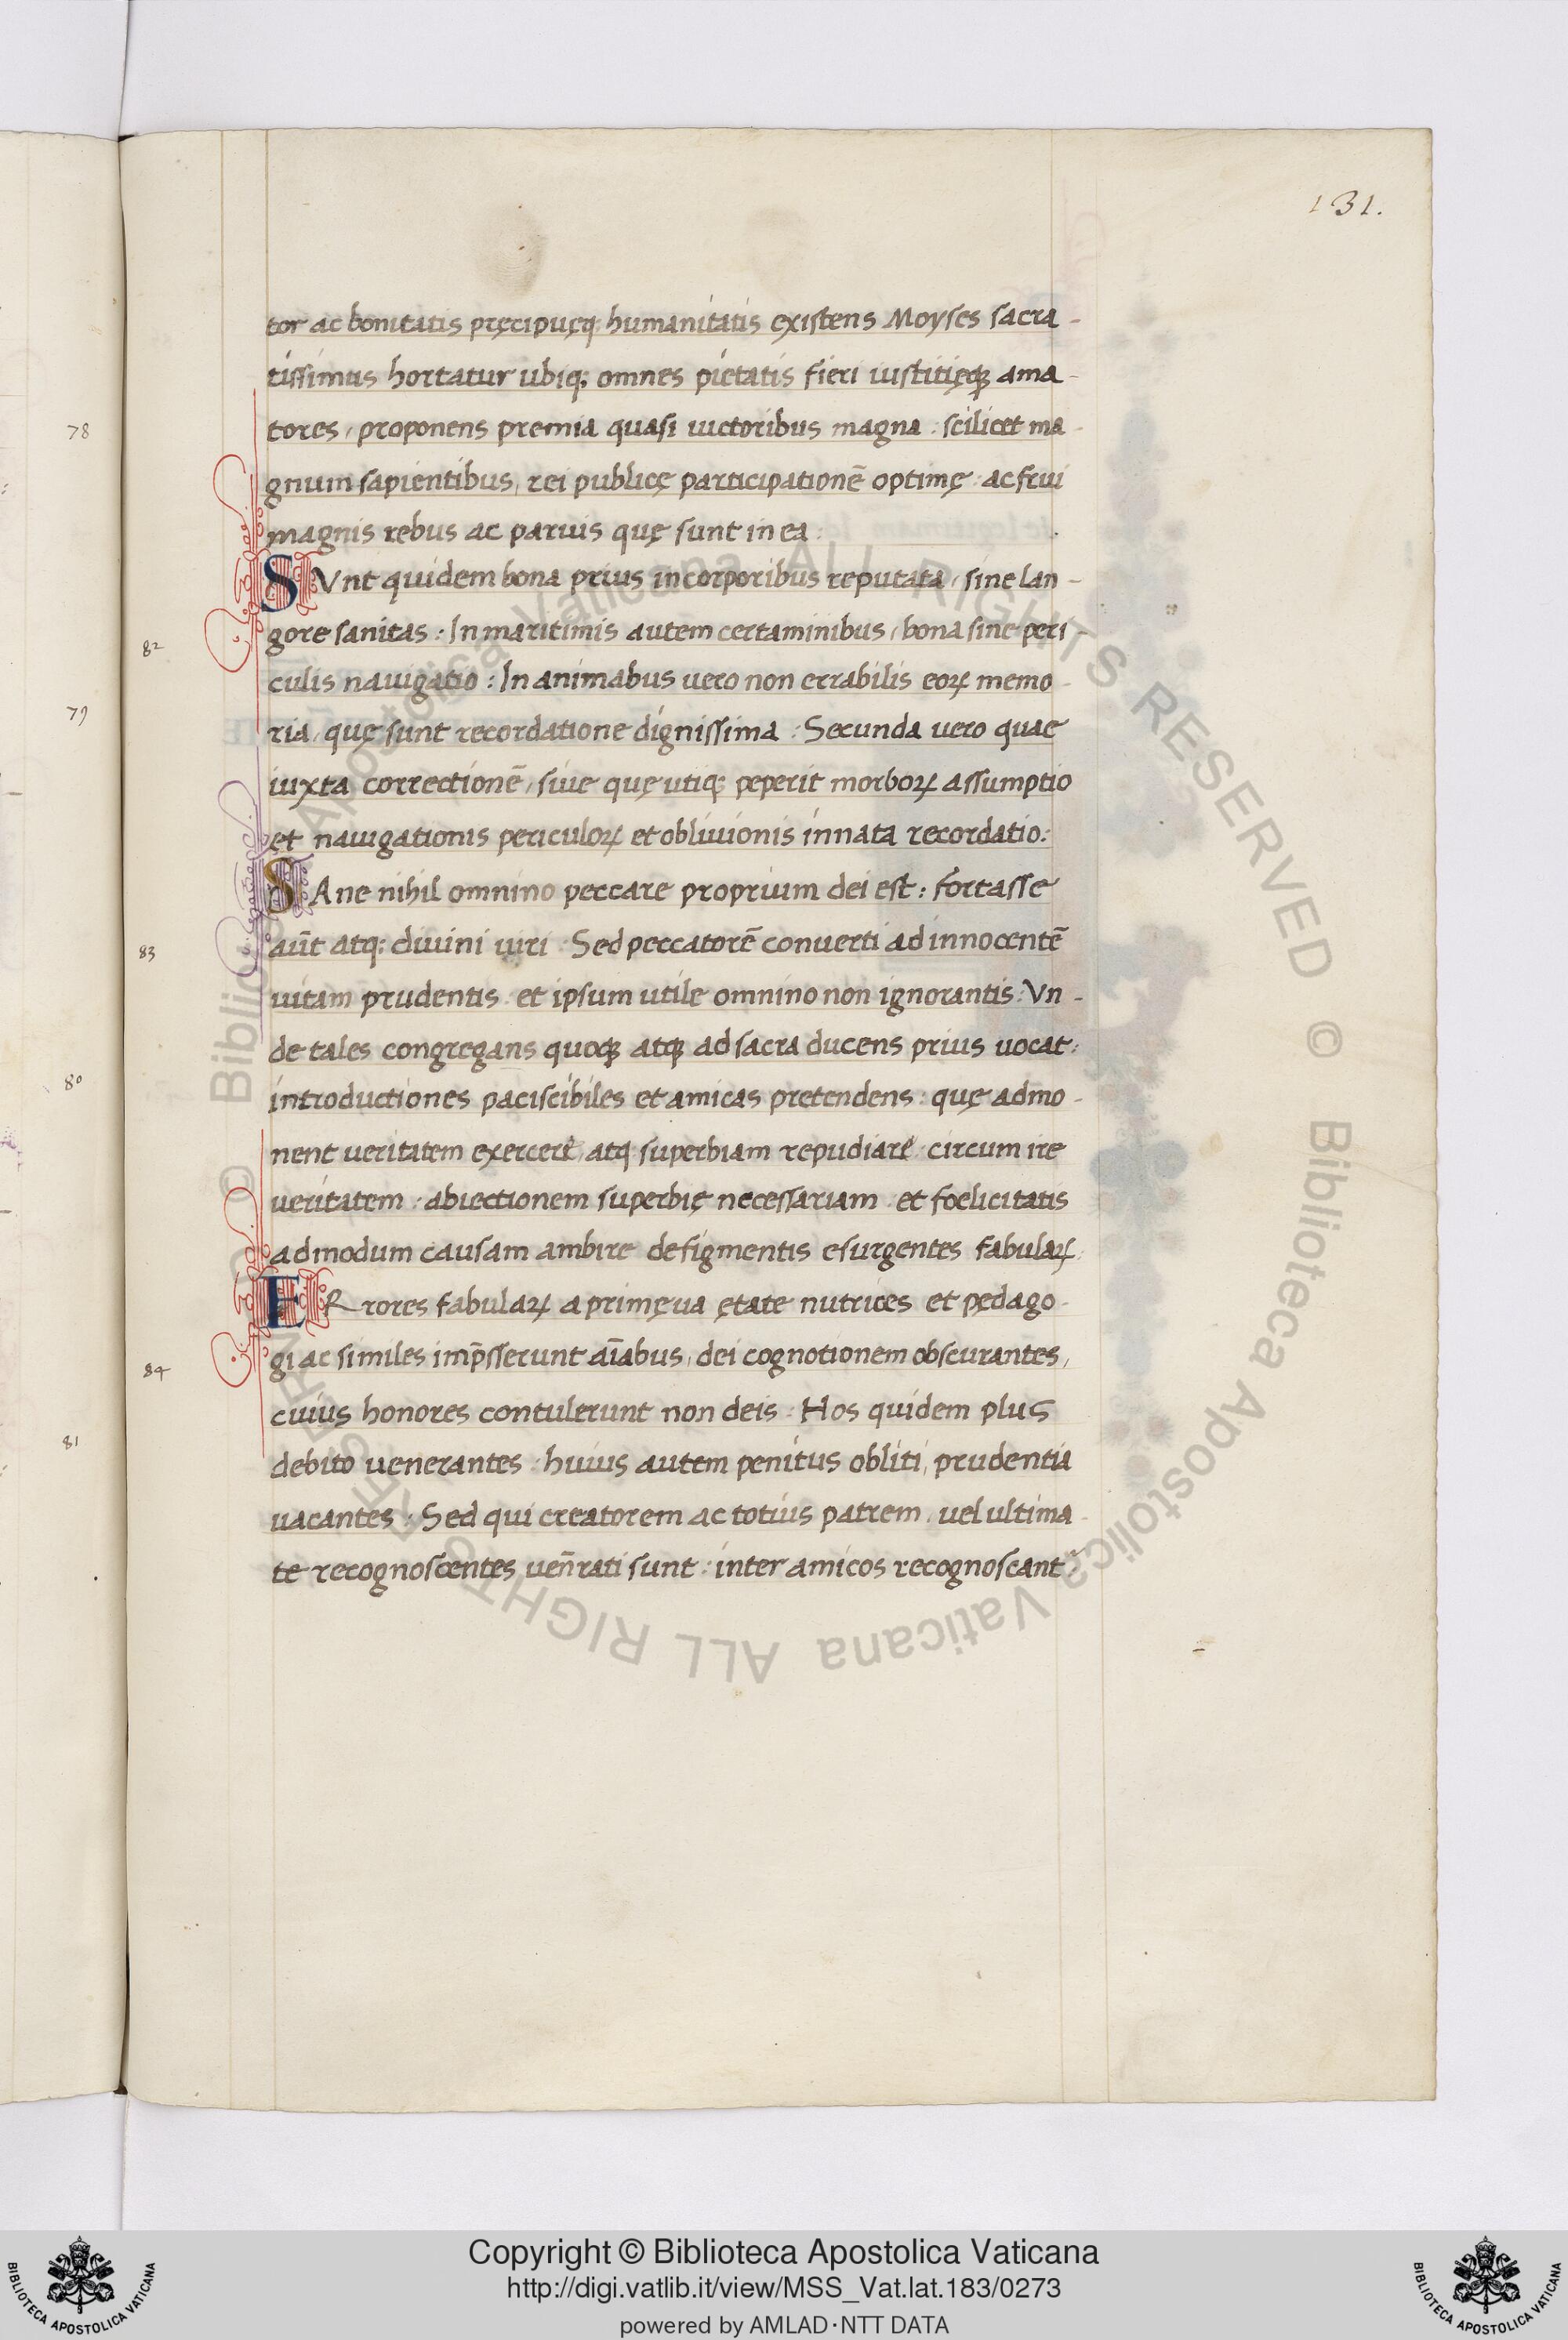 131.
tor ac bonitatis pręcipuęq; humanitatis existens Moyses sacra-
tissimus hortatur ubiq; omnes pietatis fieri iustitięqꝫ ama-
tores, proponens premia quasi uictoribus magna: scilicet ma-
gnum sapientibus, rei publicę participationē optimę: ac frui
magnis rebus ac paruis quę sunt in ea:
SVnt quidem bona prius in corporibus reputata, sine lan-
gore sanitas: In maritimis autem certaminibus, bona sine peri-
culis nauigatio: In animabus uero non errabilis eoꝝ memo-
ria, quę sunt recordatione dignissima: Secunda uero quae
iuxta correctionē, siue quę utiq; peperit morboꝝ assumptio
et nauigationis periculoꝝ et obliuionis innata recordatio:
SAne nihil omnino peccare proprium dei est: fortasse
aūt atq; diuini uiri. Sed peccatorē conuerti ad innocentē
uitam prudentis. et ipsum utile omnino non ignorantis: Vn-
de tales congregans quoqꝫ atqꝫ ad sacra ducens prius uocat:
introductiones paciscibiles et amicas pretendens: quę admo-
nent ueritatem exercere, atq; superbiam repudiare circum ire
ueritatem: abiectionem superbię necessariam. et foelicitatis
admodum causam ambire de figmentis esurgentes fabulaꝝ:
ERrores fabulaꝝ a primęua ętate nutrices et pędago-
gi ac similes imp̄sserunt aīabus, dei cognotionem obscurantes,
cuius honores contulerunt non deis: Hos quidem plus
debito uenerantes: huius autem penitus obliti, prudentia
uacantes: Sed qui creatorem ac totius patrem, uel ultima-
te recognoscentes ueñrati sunt: inter amicos recognoscant
82
83
84
78
79
80
81
© Biblioteca Apostolica Vaticana ALL RIGHTS RESERVED © Biblioteca Apostolica Vaticana ALL RIGHTS RESERVED
Copyright © Biblioteca Apostolica Vaticana
http://digi.vatlib.it/view/MSS_Vat.lat.183/0273
powered by AMLAD·NTT DATA
BIBLIOTECA APOSTOLICA VATICANA
BIBLIOTECA APOSTOLICA VATICANA